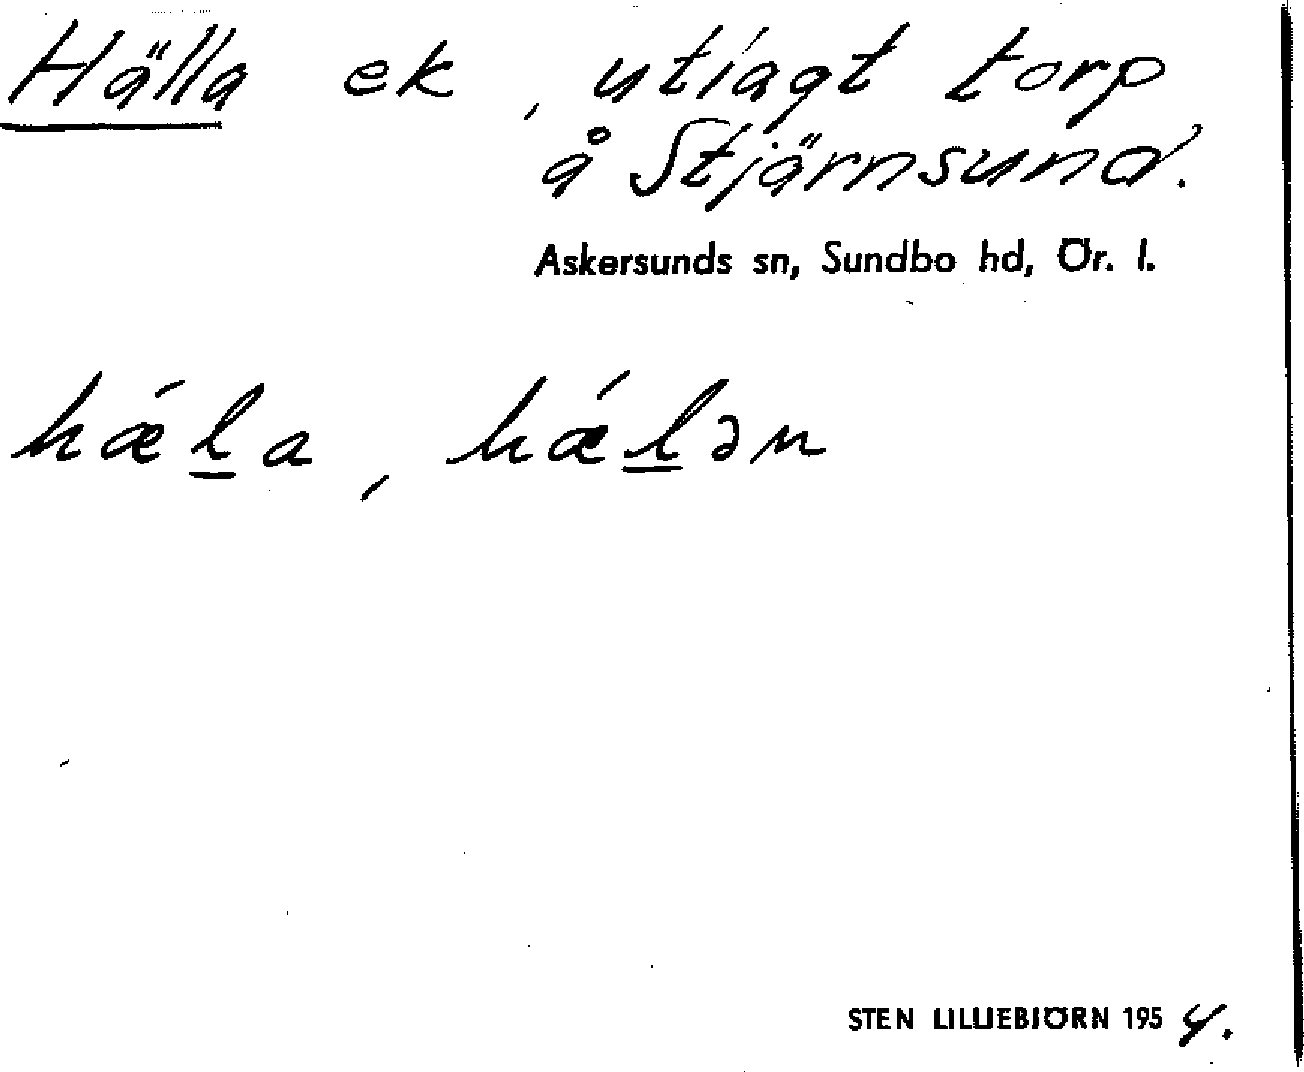 Hälla ek, utlagt torp
å Stjärnsund.
Askersunds sn, Sundbo hd, Ör. l.
hǽl̲a, hǽl̲ən
STEN LILLIEBJÖRN 1954.